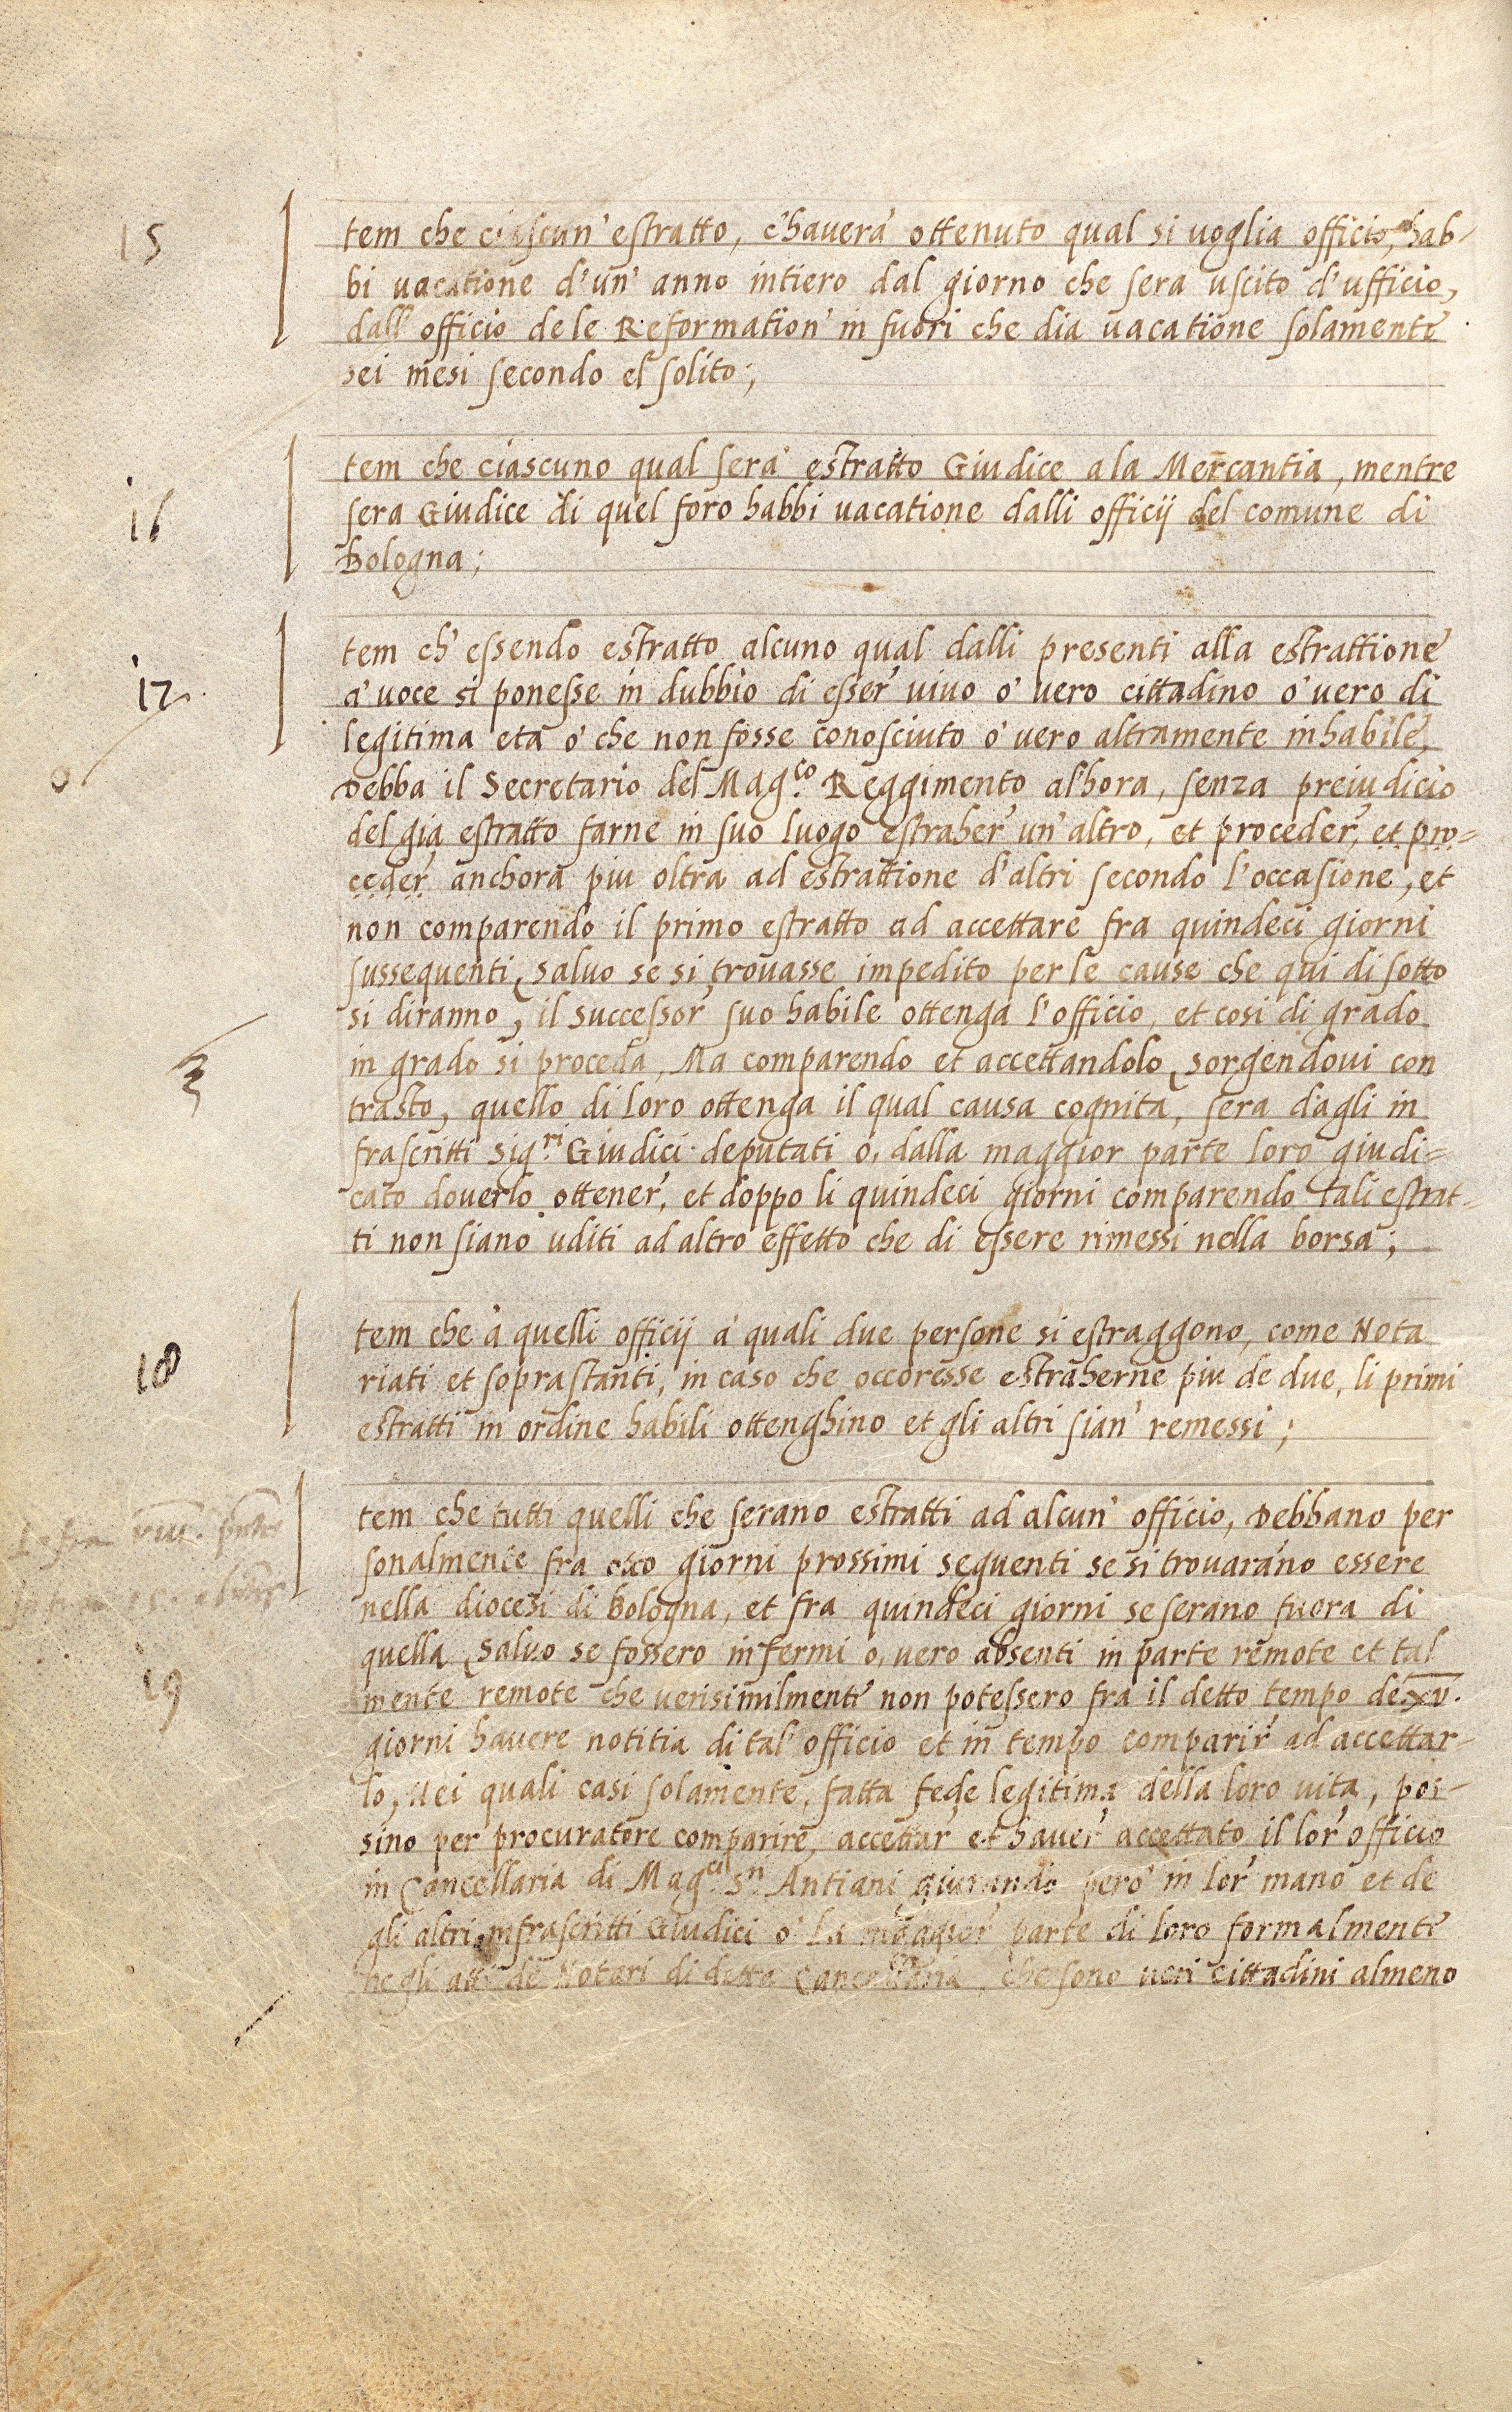 15
Item che ciascun' estratto, c'haverà ottenuto qual si voglia officio, hab-
bi vacatione d'un' anno intiero dal giorno che sera uscito d'ufficio,
dall' officio dele Reformation' in fuori che dia vacatione solamente
sei mesi secondo el solito;
16
Item che ciascuno qual sera' estratto Giudice a la Mercantia, mentre
sera Giudice di quel foro habbi vacatione dalli officij del comune di
Bologna;
17
Item ch' essendo estratto alcuno qual dalli presenti alla estrattione
a' voce si ponesse in dubbio di esser' vivo o' vero cittadino o' vero di
legitima età o' che non fosse conosciuto o' vero altramente inhabile,
Debba il Secretario del Mag.co Reggimento alhora, senza preiudicio
del gia estratto farne in suo luogo estraher' un' altro, et proceder, et pro-
ceder' anchora piu oltra ad estrattione d'altri secondo l'occasione, et
non comparendo il primo estratto ad accettare fra quindeci giorni
sussequenti, salvo se si trovasse impedito per le cause che qui di sotto
si diranno, il successor' suo habile ottenga l'officio, et cosi di grado
in grado si proceda, Ma comparendo et accettandolo, sorgendovi con
trasto, quello di loro ottenga il qual causa cognita, sera dagli in
frascritti Sig.ri Giudici deputati o, dalla maggior parte loro giudi-
cato doverlo ottener', et doppo li quindeci giorni comparendo tali estrat-
ti non siano uditi ad altro effetto che di essere rimessi nella borsa;
18
Item che à quelli officij a' quali due persone si estraggono, come Nota
riati et soprastanti, in caso che occoresse estraherne piu de due, li primi
estratti in ordine habili ottenghino et gli altri sian' remessi;
Item che tutti quelli che serano estratti ad alcun' officio, Debbano per
sonalmente fra otto giorni prossimi sequenti se si trovaràno essere
nella diocesi di Bologna, et fra quindeci giorni se serano fuora di
quella, salvo se fossero infermi o, vero absenti in parte remote et tal
19
mente remote che verisimilmente non potessero fra il detto tempo de xv.
giorni havere notitia di tal' officio et in tempo comparir' ad accettar-
lo, Nei quali casi solamente, fatta fede legitima della loro vita, pos-
sino per procuratore comparire, accettar' et haver' accettato il lor' officio
in Cancellaria di Mag.ci S.ri Antiani giurando però in lor' mano et de
gli altri infrascritti Giudici o' la maggior' parte di loro formalmente
negli atti de Notari di detta Cancellaria, che sono veri cittadini almeno